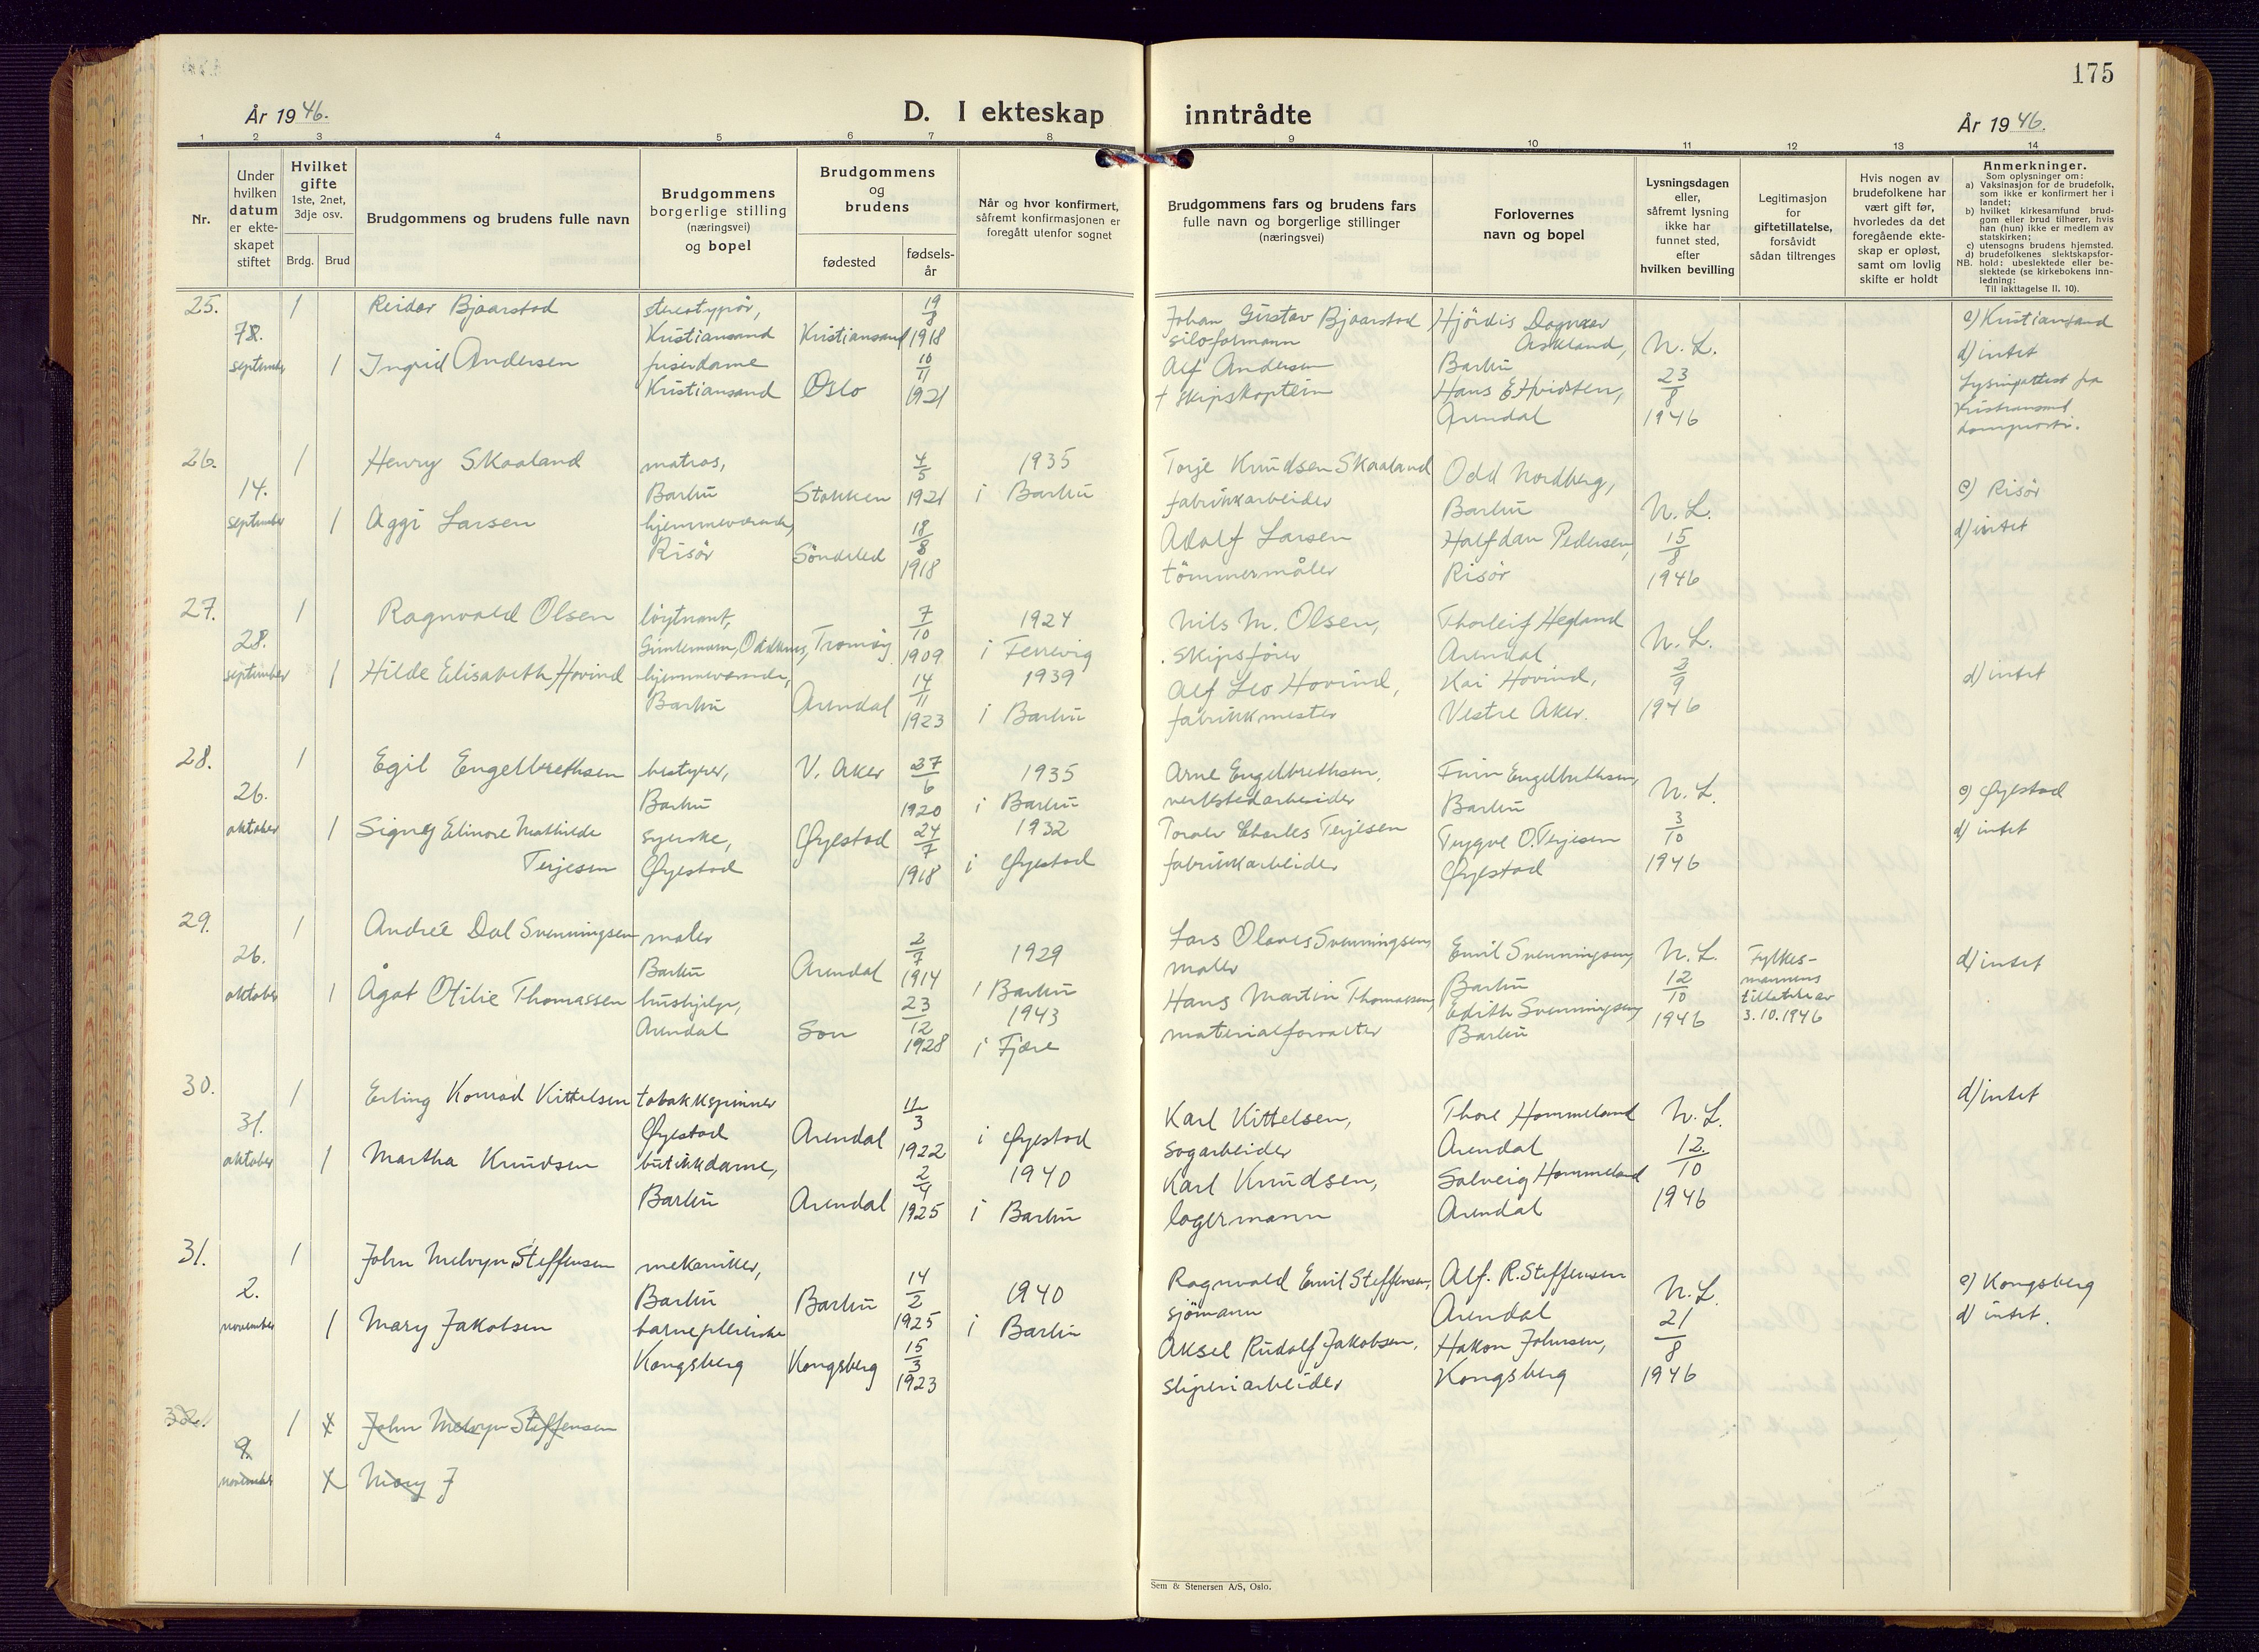 175
År 1946.
D. I ekteskap inntrådte
År 1946.
1 2 3 4 5 6 7 8 9 10 11 12 13 14
Nr.
Under hvilken datum er ekte-skapet stiftet
Hvilket gifte 1ste, 2net, 3dje osv.
Brdg. Brud
Brudgommens og brudens fulle navn
Brudgommens borgerlige stilling (næringsvei) og bopel
Brudgommens og brudens
fødested
fødsels-år
Når og hvor konfirmert, såfremt konfirmasjonen er foregått utenfor sognet
Brudgommens fars og brudens fars fulle navn og borgerlige stillinger (næringsvei)
Forlovernes navn og bopel
Lysningsdagen eller, såfremt lysning ikke har funnet sted, efter hvilken bevilling
Legitimasjon for giftetillatelse, forsåvidt sådan tiltrenges
Hvis nogen av brudefolkene har vært gift før, hvorledes da det foregående ekte-skap er opløst, samt om lovlig skifte er holdt
Anmerkninger.
Som oplysninger om:
a) Vaksinasjon for de brudefolk, som ikke er konfirmert her i landet;
b) hvilket kirkesamfund brud-gom eller brud tilhører, hvis han (hun) ikke er medlem av statskirken;
c) utensogns brudens hjemsted.
d) brudefolkenes slektskapsfor-hold: ubeslektede eller be-slektede (se kirkebokens inn-ledning:
NB.
Til iakttagelse II. 10).
25. 1 Reidar Bjaarstad
Kristiansand Kristiansand 19/8 1918
Johan Gustav Bjaarstad
Hjördis
Askland,
Barbu
september 1 Ingrid Andersen
frisørdame
Kristiansand Oslo 10/11 1921
Alf Andersen
+ skipskaptein
Hans E Hvidsten,
Arendal
N. L. 23/8 1946
c) Kristiansand
d) intet
26. 14. september 1 Henry Skaaland
matros,
Barbu Stokken 4/5 1921
1935 i Barbu
Torje Knudsen Skaaland
fabrikkarbeider
Odd Nordberg,
Barbu
1 Aggi Larsen
hjemmeværende,
Risør Söndeled 18/8 1918
Adolf Larsen
tömmermåler
Halfdan Pedersen,
Risör
N. L. 15/8 1946
c) Risör
d) intet
27. 28. september 1 Ragnvald Olsen
löytnant,
Tromöy 7/10 1909
1924 i Fevik
Nils M. Olsen,
skipsförer
Thorleif Hegland
Arendal
1 Hilde Elisabeth Hovind
hjemmeværende,
Barbu Arendal 14/11 1923
1939 i Barbu
Alf Leo Hovind,
fabrikkmester
Kai Hovind,
Vestre Aker.
N. L. 2/9 1946
d) intet
28. 26. oktober 1 Egil Engelbrethsen
bestyrer,
Barbu V. Aker 27/6 1920
1935 i Barbu
Arne Engelbrethsen,
verkstedarbeider
Finn Engelbrethsen,
Barbu
1 Signey Elinore Mathilde
Terjesen
syerske,
Øyestad Øyestad 24/7 1918
1932 i Øyestad
Toralv Charles Terjesen
fabrikkarbeider
Trygve O. Terjesen
Øyestad
N. L. 3/10 1946
c) Øyestad
d) intet
29. 26. oktober 1 Andreé Dal Svenningsen
maler
Barbu Arendal 2/7 1914
1929 i Barbu
Lars Olaves Svenningsen,
maler
Emil Svenningsen,
Barbu
1 Ågot Otilie Thomassen
hushjelp,
Arendal Son 23/12 1928
1943 i Fjære
Hans Martin Thomassen,
materialforvalter
Edith Svenningsen,
Barbu
N. L. 12/10 1946
Fylkes-
mannens
tillatelse av
3.10.1946
d) intet
30. 31. oktober 1 Erling Konrad Kittelsen
tobakkspinner
Øyestad Arendal 11/3 1922
i Øyestad
Karl Kittelsen,
sagarbeider
Thore Hommeland
Arendal
1 Martha Knudsen
butikkdame,
Barbu Arendal 2/4 1925
1940 i Barbu
Karl Knudsen,
lagermann
Solveig Hommeland
Arendal
N. L. 12./10 1946
d) intet
31. 2. november 1 John Melvyn Steffensen
mekaniker,
Barbu Barbu 14/2 1925
1940 i Barbu
Ragnvald Emil Steffensen,
sjömann
Alf. R. Steffensen
Arendal
1 Mary Jakobsen
barnepleierske
Kongsberg Kongsberg 15/3 1923
Aksel Rudolf Jakobsen,
sliperiarbeider
Hakon Johnsen,
Kongsberg
N. L. 21/8 1946
c) Kongsberg
d) intet.
32. 9. november 1 John Melvyn Steffensen
Mary J
Sem & Stenersen A/S, Oslo.